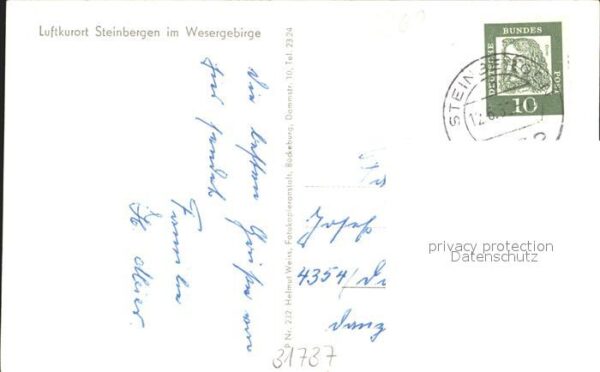 Luftkurort Steinbergen im Wesergebirge
DEUTSCHE BUNDESPOST
10
STEINBERGEN
Die besten Grüße von
hier sendet
Familie
H. Meier.
P Nr. 232 Helmut Weiss, Fotokopieranstalt, Bückeburg, Dammstr. 10, Tel. 2324
Fa
Josef
4354/
privacy protection
Datenschutz
31737